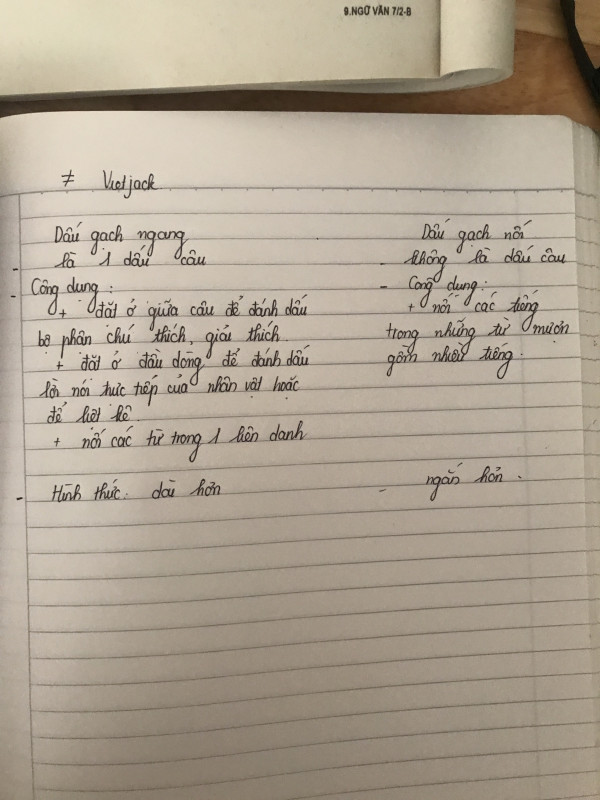 9.NGỮ VĂN 7/2-B
≠ Vietjack
Dấu gạch ngang
- là 1 dấu câu
- Công dụng :
+ đặt ở giữa câu để đánh dấu
bộ phận chú thích, giải thích.
+ đặt ở đầu dòng để đánh dấu
lời nói trực tiếp của nhân vật hoặc
để liệt kê
+ nối các từ trong 1 liên danh
- Hình thức: dài hơn
Dấu gạch nối
- không là dấu câu
- Công dụng :
+ nối các tiếng
trong những từ mượn
gồm nhiều tiếng.
- ngắn hơn.